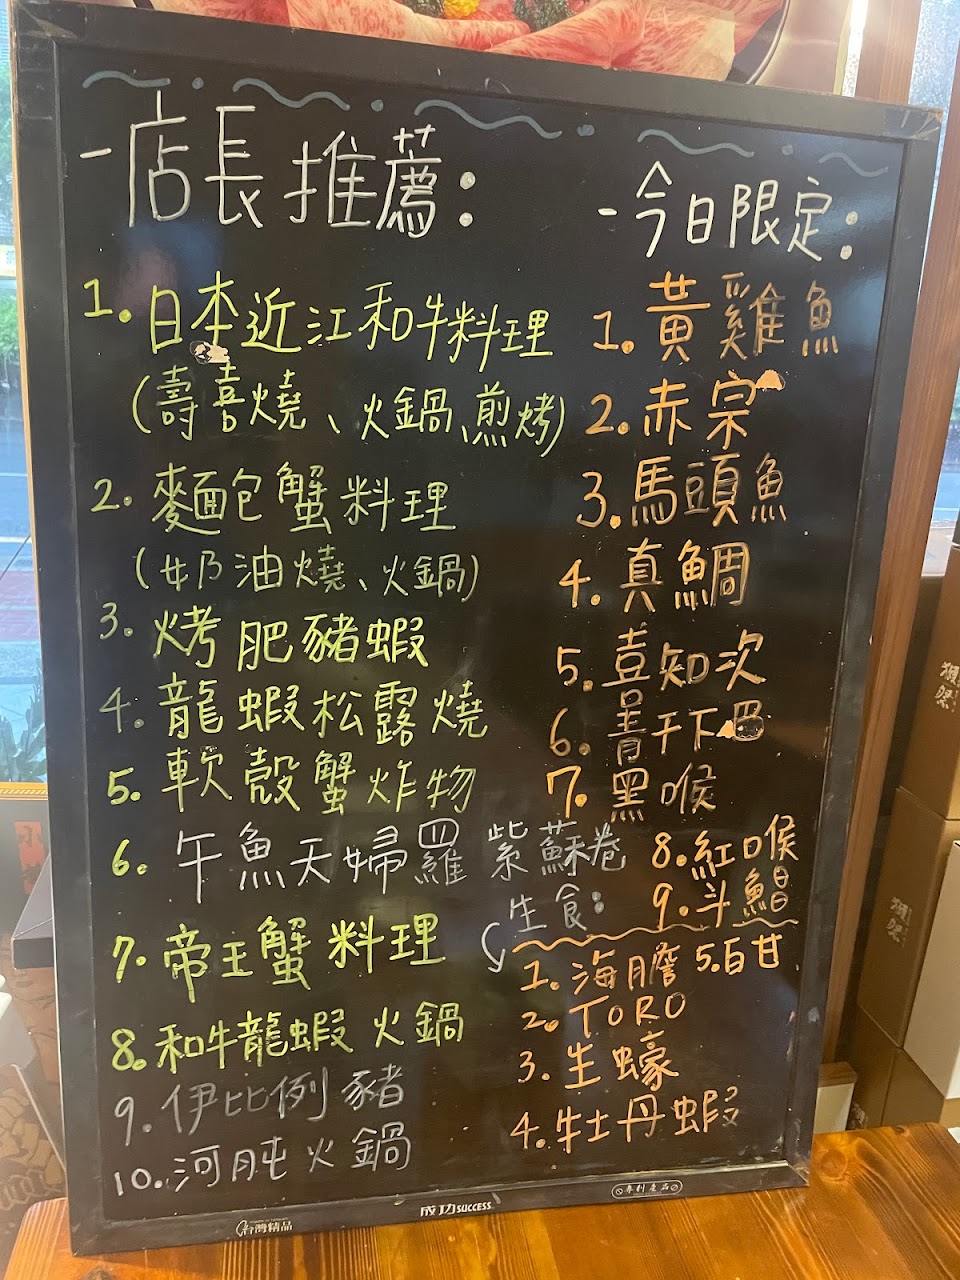 -店長推薦:
1.日本近江和牛料理
(壽喜燒、火鍋、煎烤)
2.麵包蟹料理
(奶油燒、火鍋)
3.烤肥豬蝦
4.龍蝦松露燒
5.軟殼蟹炸物
6.午魚天婦羅 紫蘇卷
7.帝王蟹料理
8.和牛龍蝦火鍋
9.伊比例豬
10.河肫火鍋
-今日限定:
1.黃雞魚
2.赤宗
3.馬頭魚
4.真鯛
5.喜知次
6.青干下巴
7.黑喉
8.紅喉
9.斗鯧
生食:
1.海膽
2.TORO
3.生蠔
4.牡丹蝦
5.白甘
台灣精品
成功SUCCESS
專利產品